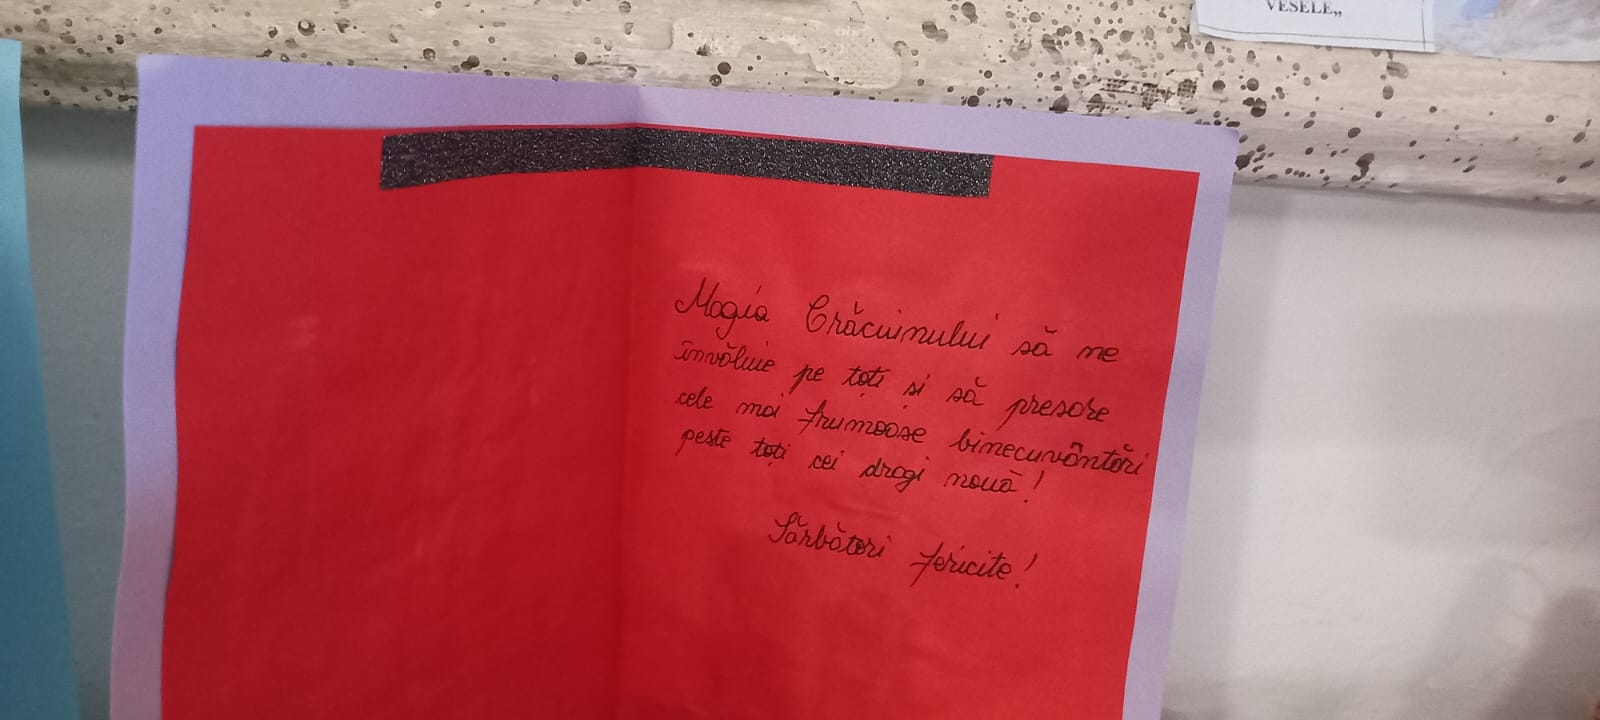 VESELE„
Magia Crăciuinului să ne
învăluie pe toți și să presare
cele mai frumoase binecuvântări
peste toți cei dragi nouă!
Sărbători fericite!